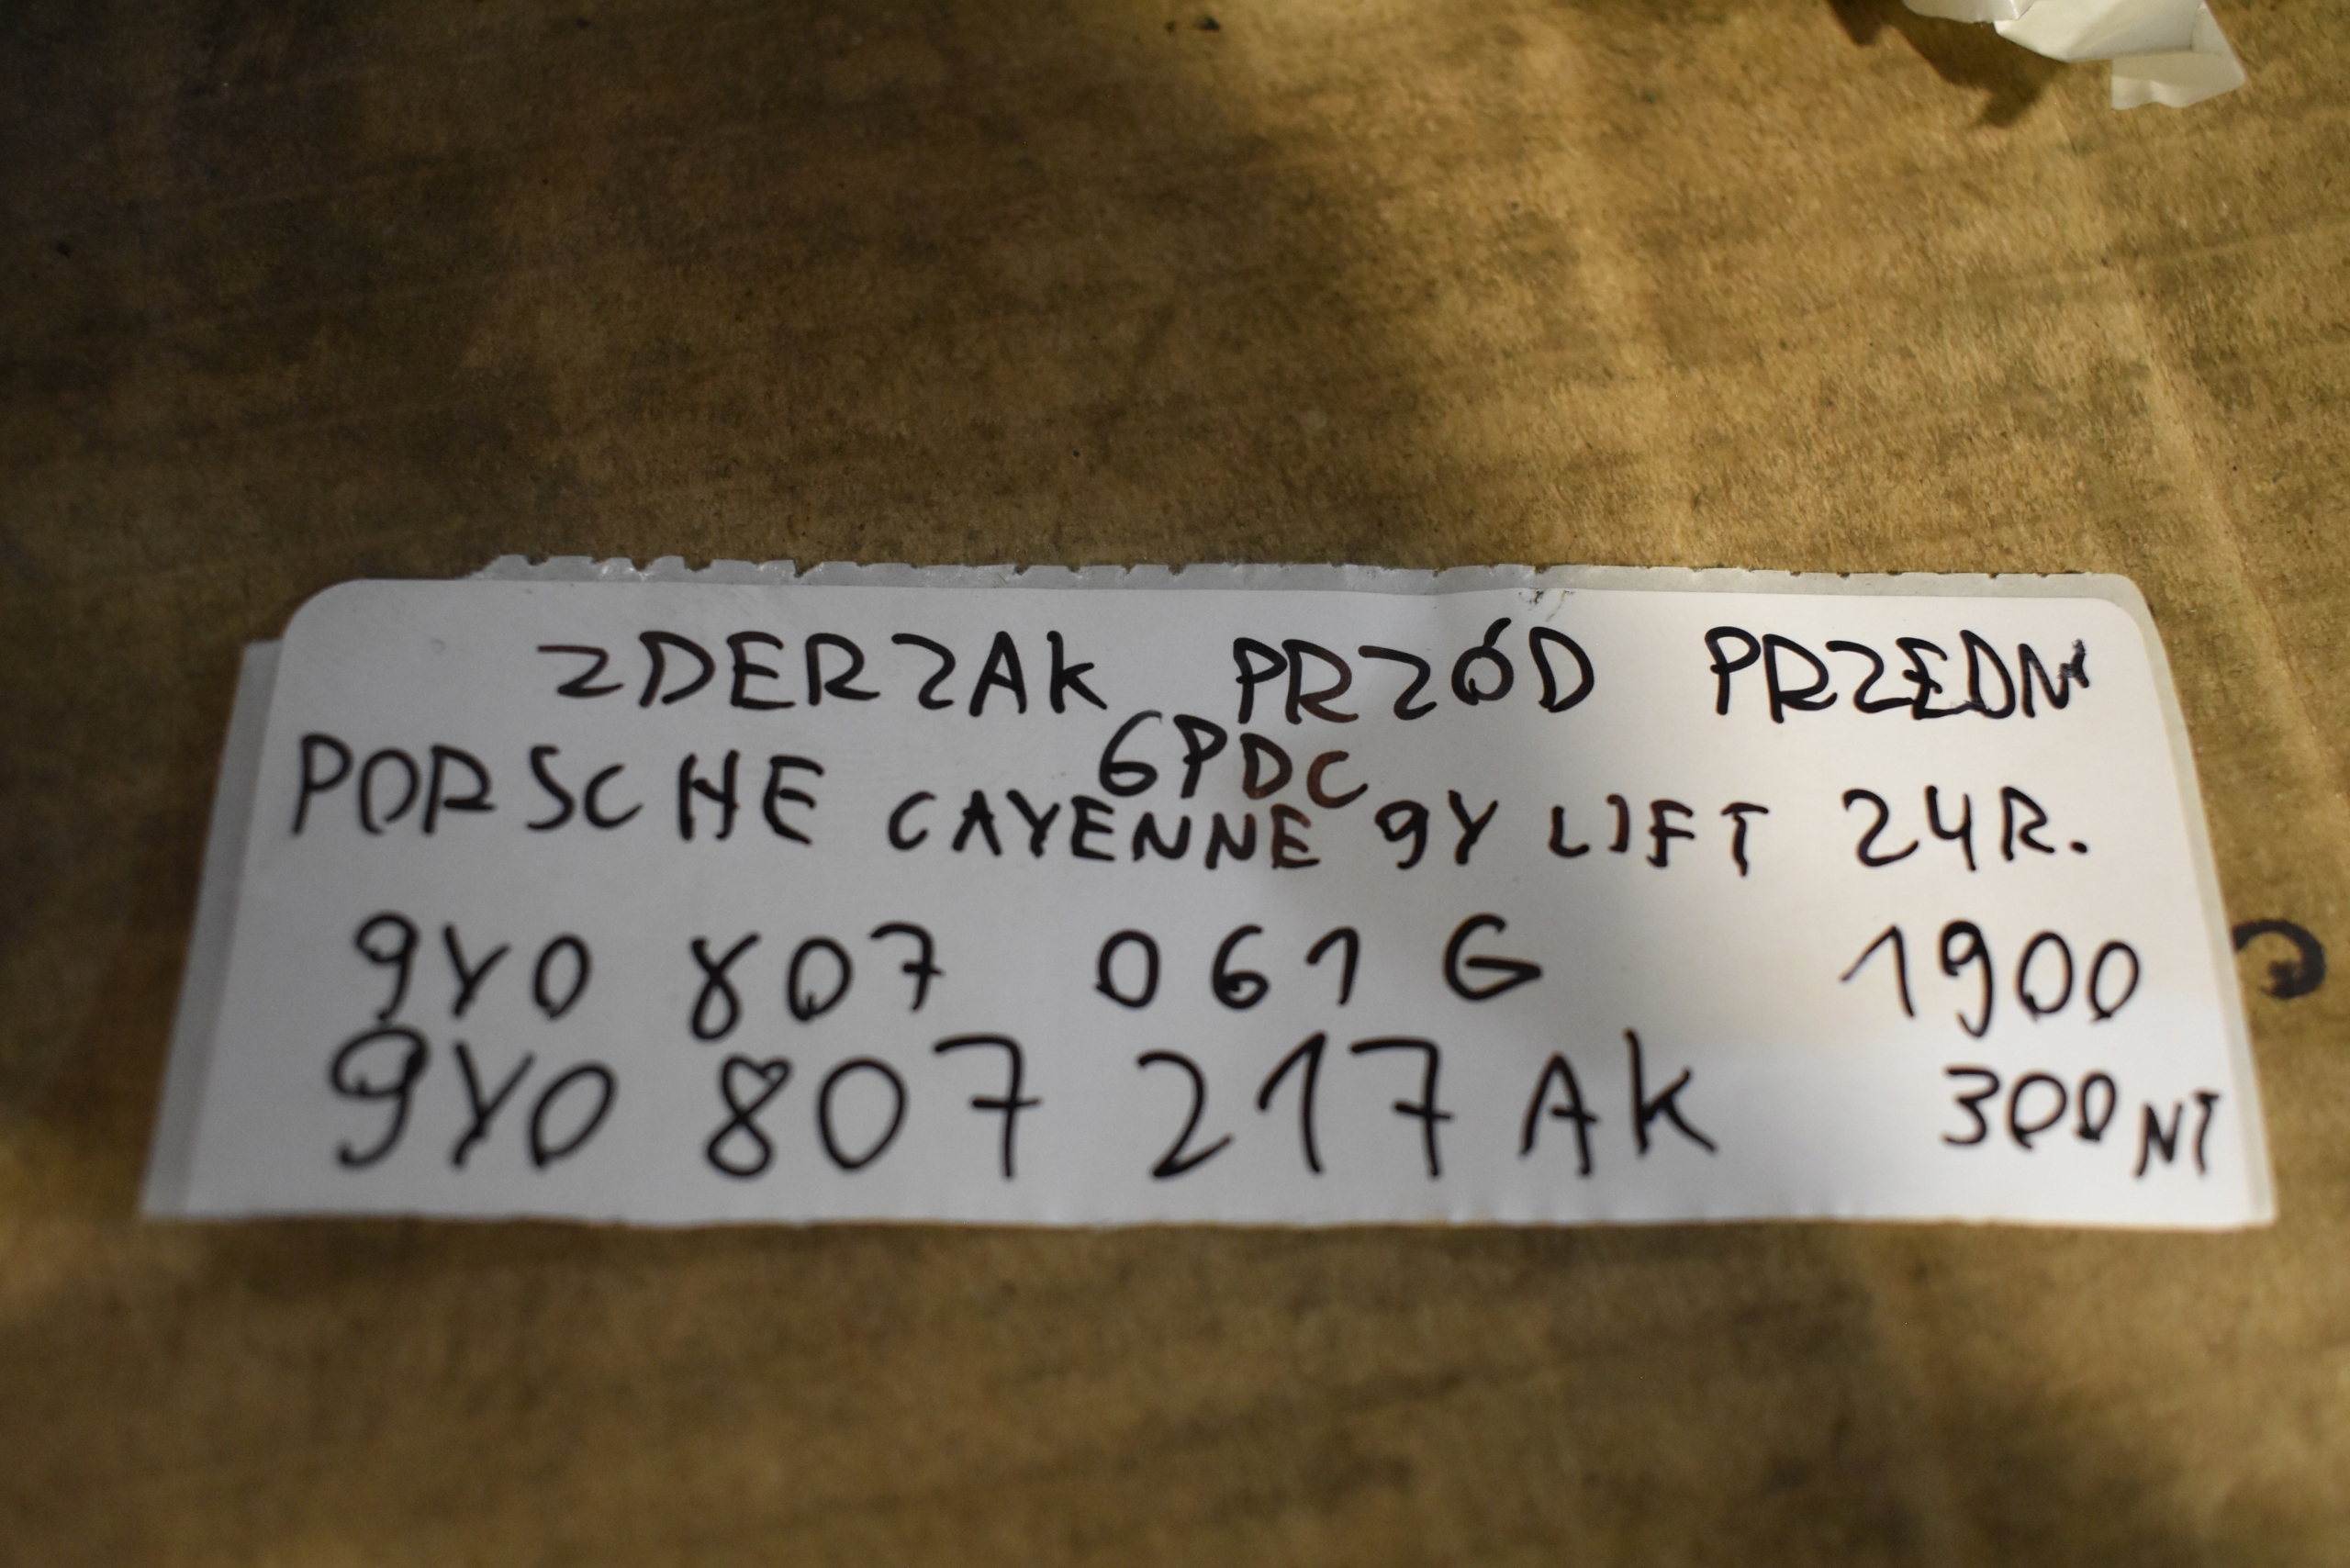 ZDERZAK PRZÓD PRZEDNI
6PDC
PORSCHE CAYENNE 9Y LIFT 24R.
9Y0 807 061 G 1900
9Y0 807 217 AK 300 NT